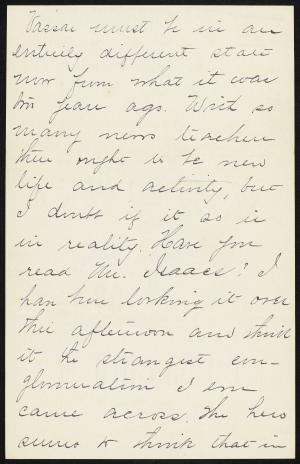 Vassar must be in an
entirely different state
now from what it was
two years ago. With so
many new teachers
there ought to be new
life and activity, but
I doubt if it so is
in reality. Have you
read Mr. Isaacs? I
have been looking it over
this afternoon and think
it the strangest con-
glomeration I ever
came across. The hero
seems to think that in